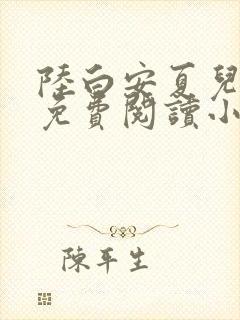 陸白安夏兒
免費閱讀小
陳平生